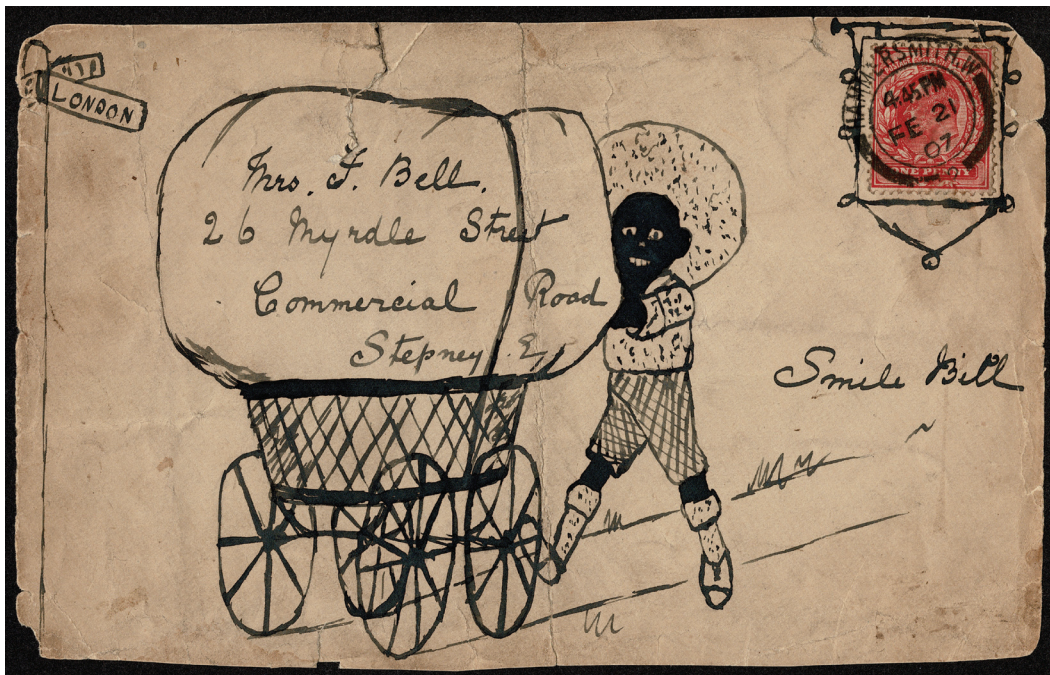 LONDON
HAMMERSMITH.W.
4.45 PM
FE 21
07
ONE PENNY
Mrs. F. Bell.
26 Myrdle Street
Commercial Road
Stepney. E
Smile Bill